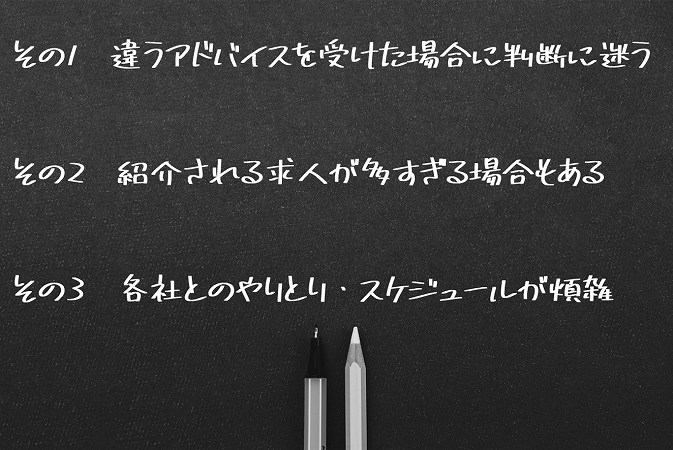 その1　違うアドバイスを受けた場合に判断に迷う
その2　紹介される求人が多すぎる場合もある
その3　各社とのやりとり・スケジュールが煩雑